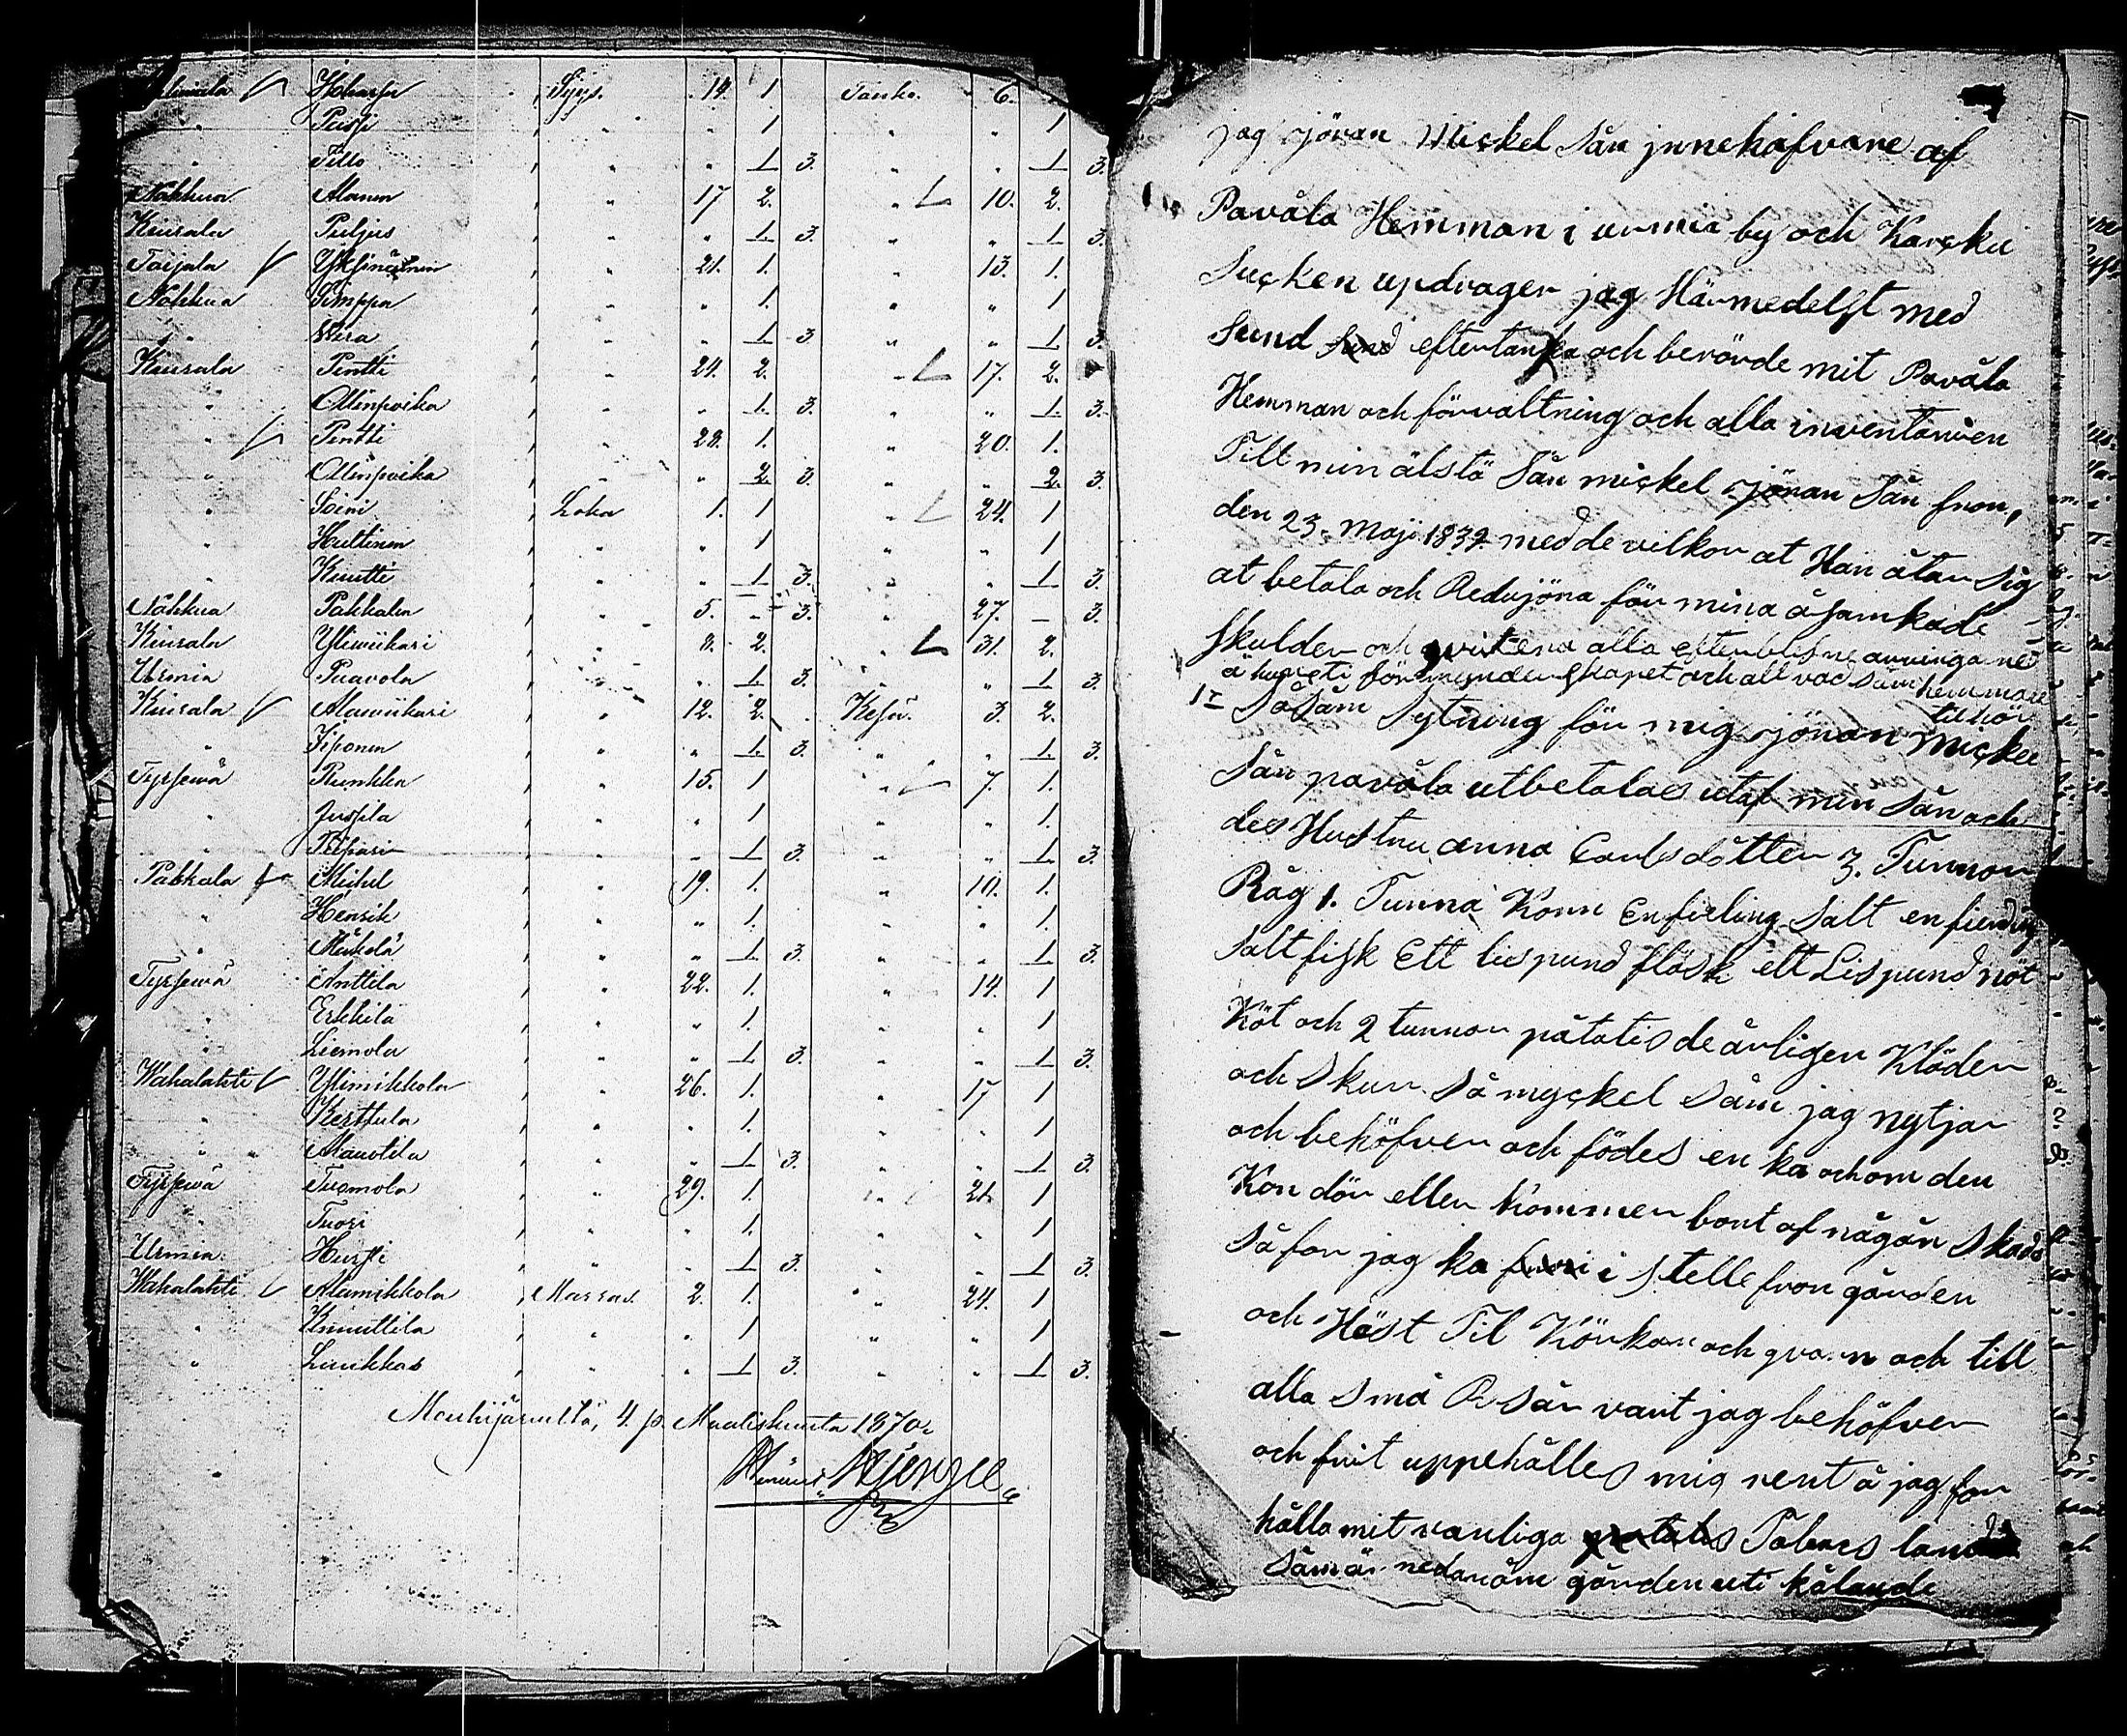 Hoharju Syys. 14. 1 Touko. 6. 1
" Pussi " " 1 " " 1
" Tillo " " 1 3. " " 1 3.
Nokkua Alanen " 17 2. " 10. 2.
Kiurala Puljus " " 1 3. " " 1 3.
Taijala " 21. 1. " 13. 1.
Nokkua Simppa " " 1. " " 1
" Wira " " 1 3 " " 1 3.
Kiurala Pentti " 24. 2. " 17. 2.
" " " 1. 3. " " 1. 3.
" Pentti " 28. 1. " 20. 1.
" " " 2. 3. " " 2. 3.
" Soini Loka 1. 1 " 24. 1
" Huttinen " " 1 " " 1
" Knutti " " 1 3. " " 1 3.
Nokkua Pakkala " 5. - 3. " 27. - 3.
Kiurala Yliwiikari " 8. 2. " 31. 2.
Urmia Paavola " " 1 3. " " 1 3.
Kiurala Alawiikari " 12. 2. Kesä. 3. 2.
" Siponen " " 1. 3. " " 1. 3.
Tyrsewä Punkka " 15. 1 " 7. 1.
" Jussila " " 1 " " 1.
" Piipari " " 1 3. " " 1 3.
Pakkala Michel " 19. 1. " 10. 1.
" Henrik " " 1. " " 1.
" Mikola " " 1 3. " " 1 3.
Tyrsewä Anttila " 22. 1. " 14. 1
" Erkkilä " " 1. " " 1
" Liemola " " 1 3. " " 1 3.
Wahalahti Ylimikkola " 26. 1. " 17 1
" Kerttula " " 1. " " 1
" Mauttila " " 1 3. " " 1 3.
Tyrsewä Tuomola " 29. 1. " 21. 1
" Tuori " " 1. " " 1
Urmia Hursti " " 1 3. " " 1 3.
Wahalahti Alimikkola Marras. 2. 1. " 24. 1
" Knuuttila " " 1 " " 1
" Liukkas " " 1 3. " " 1 3.
Mouhijärveltä, 4. p. Maaliskuuta 1870.
jag jöran Mickel Sån jnnehafvare af
Pavåla Hemman i urmia by och Karcku
Sucken updrager jag Härmedelst med
Sund Sund eftertanka och berörde mit Pavåla
Hemman och förvaltning och alla inventarien
Till min älsta Sån mickel jöran Sån fron,
den 23. Maji 1832. med de vilkor at Han åtar Sig
at betala och Redujöra för mina åsamkade
skulder och qvitera alla efterblefne arvingarne
förmynderskapet och all vad Såm hemmane
tilhör
1ᵒ Såsåm Sytning för mig jöran mickel
Sån pavåla utbetalas utaf min Sån och
des Hustru anna Carlsdotter 3. Tunnor
Råg 1. Tunna Korn En fierling Salt en fierding
Salt fisk Ett lispund fläsk ett Lispund nöt
Köt och 2 tunnor påtatis de årligen Kläder
och Skur Så myckel Såm jag nytjar
och behöfver och födes en ko och om den
Kon dör eller Kommer bort af någån Skada
Så for jag ko i Stelle fron gården
och Häst Til Körkan och qvarn och till
alla Små Resår vart jag behöfver
och frit uppehålles mig vent å jag for
hålla mit vanliga Tobacs land
Såm är nedanåm gården uti kålande